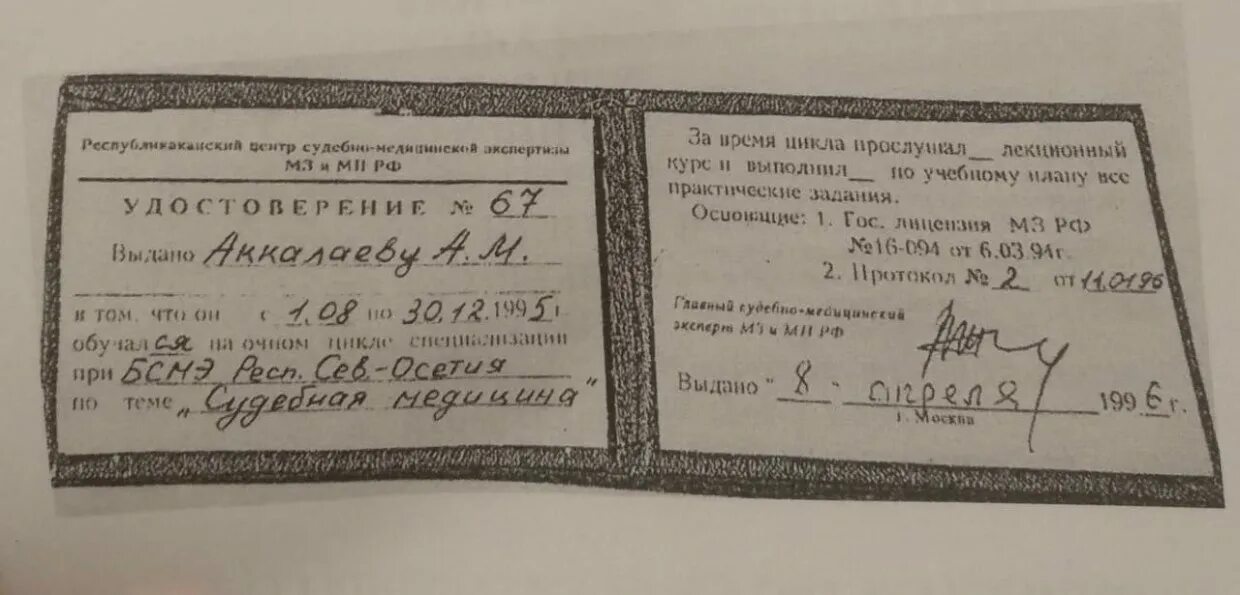 Республикаканский центр судебно-медицинской экспертизы
МЗ и МП РФ
УДОСТОВЕРЕНИЕ № 67
Выдано Аккалаеву А.М.
в том, что он с 1.08 по 30.12.1995г
обучался на очном цикле специализации
при БСМЭ Респ. Сев-Осетия
по теме „Судебная медицина"
За время цикла прослушал__ лекционный
курс и выполнил__ по учебному плану все
практические задания.
Основание: 1. Гос. лицензия МЗ РФ
№16-094 от 6.03.94г.
2. Протокол № 2 от 11.01.96
Главный судебно-медицинский
эксперт МЗ и МП РФ
Выдано "8" апреля 1996г.
г. Москва